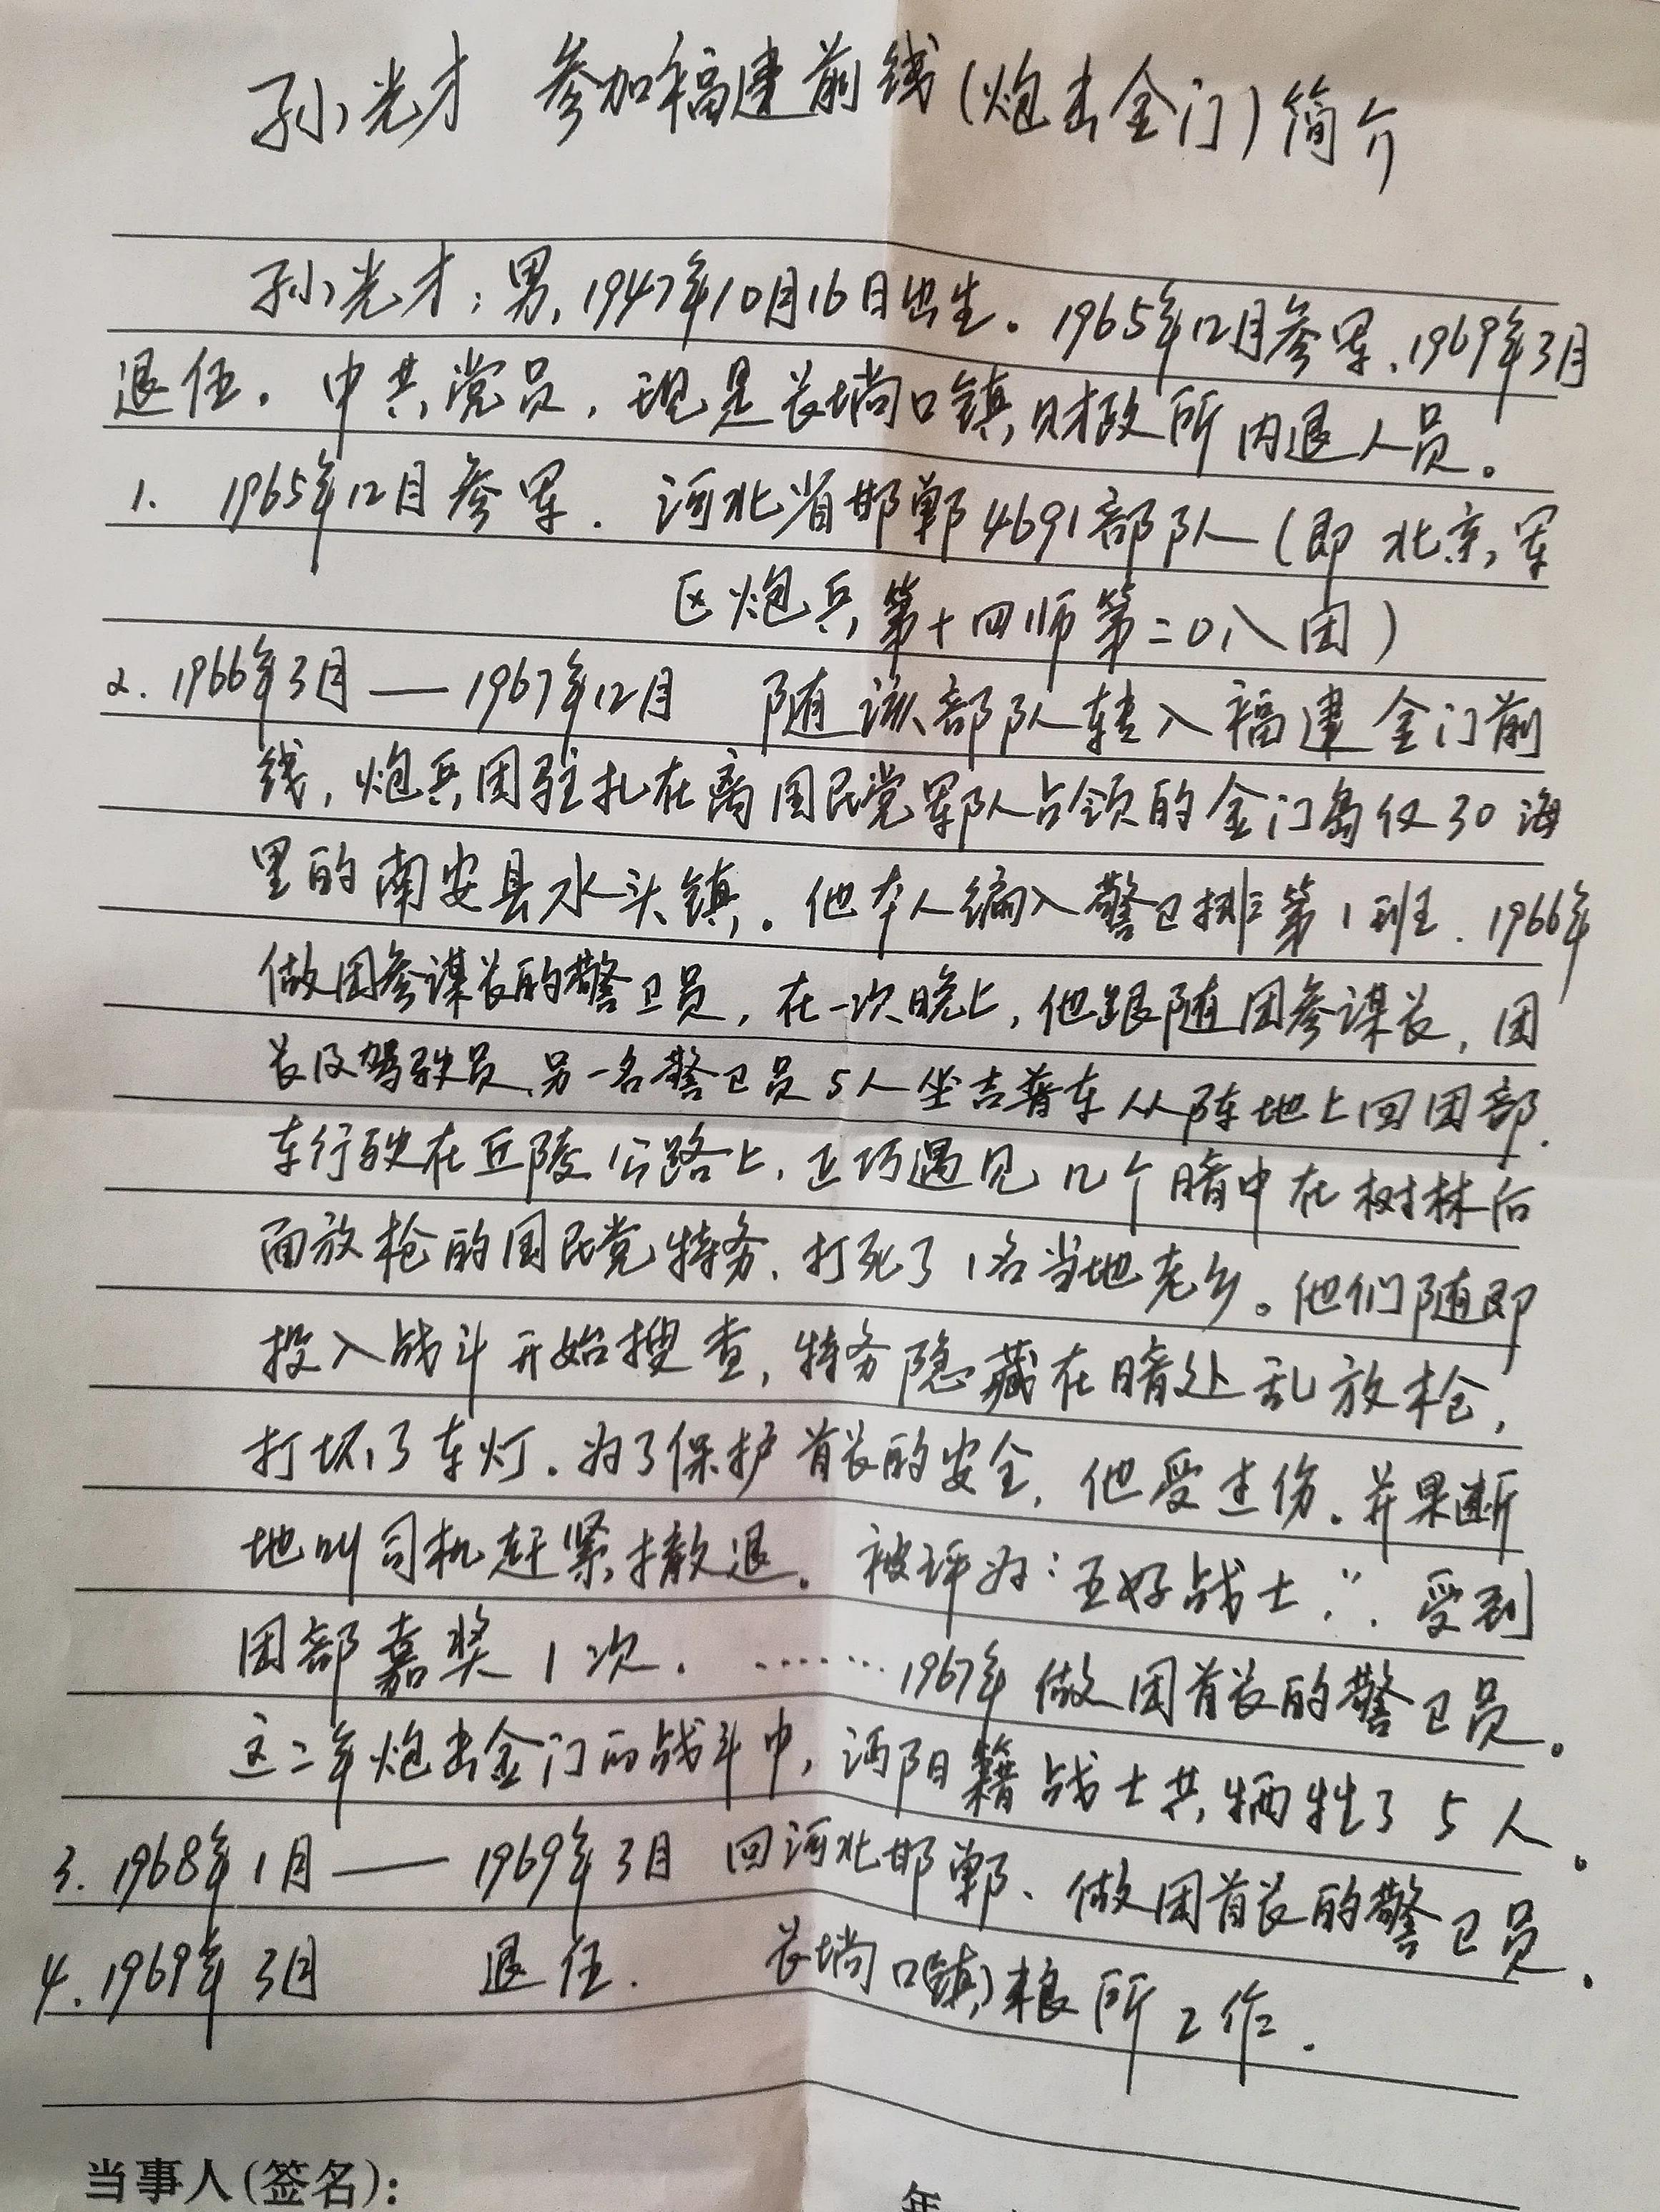 孙光才 参加福建前线(炮击金门)简介
孙光才:男,1947年10月16日出生。1965年12月参军,1969年3月
退伍。中共党员,现是长埫口镇财政所内退人员。
1. 1965年12月参军. 河北省邯郸4691部队(即北京军
区炮兵第十四师第二0八团)
2. 1966年3月——1967年12月 随该部队转入福建金门前
线,炮兵团驻扎在离国民党军队占领的金门岛仅30海
里的南安县水头镇。他本人编入警卫排第1班.1966年
做团参谋长的警卫员,在一次晚上,他跟随团参谋长,团
长及驾驶员、另一名警卫员5人坐吉普车从阵地上回团部.
车行驶在丘陵公路上,正巧遇见几个暗中在树林后
面放枪的国民党特务,打死了1名当地老乡。他们随即
投入战斗开始搜查,特务隐藏在暗处乱放枪,
打坏了车灯.为了保护首长的安全,他受过伤.并果断
地叫司机赶紧撤退。被评为:五好战士".受到
团部嘉奖1次. ……1967年做团首长的警卫员。
这二年炮击金门的战斗中,沔阳籍战士共牺牲了5人。
3. 1968年1月——1969年3月 回河北邯郸、做团首长的警卫员.
4. 1969年3月 退伍. 长埫口(镇)粮所工作.
当事人(签名): 年